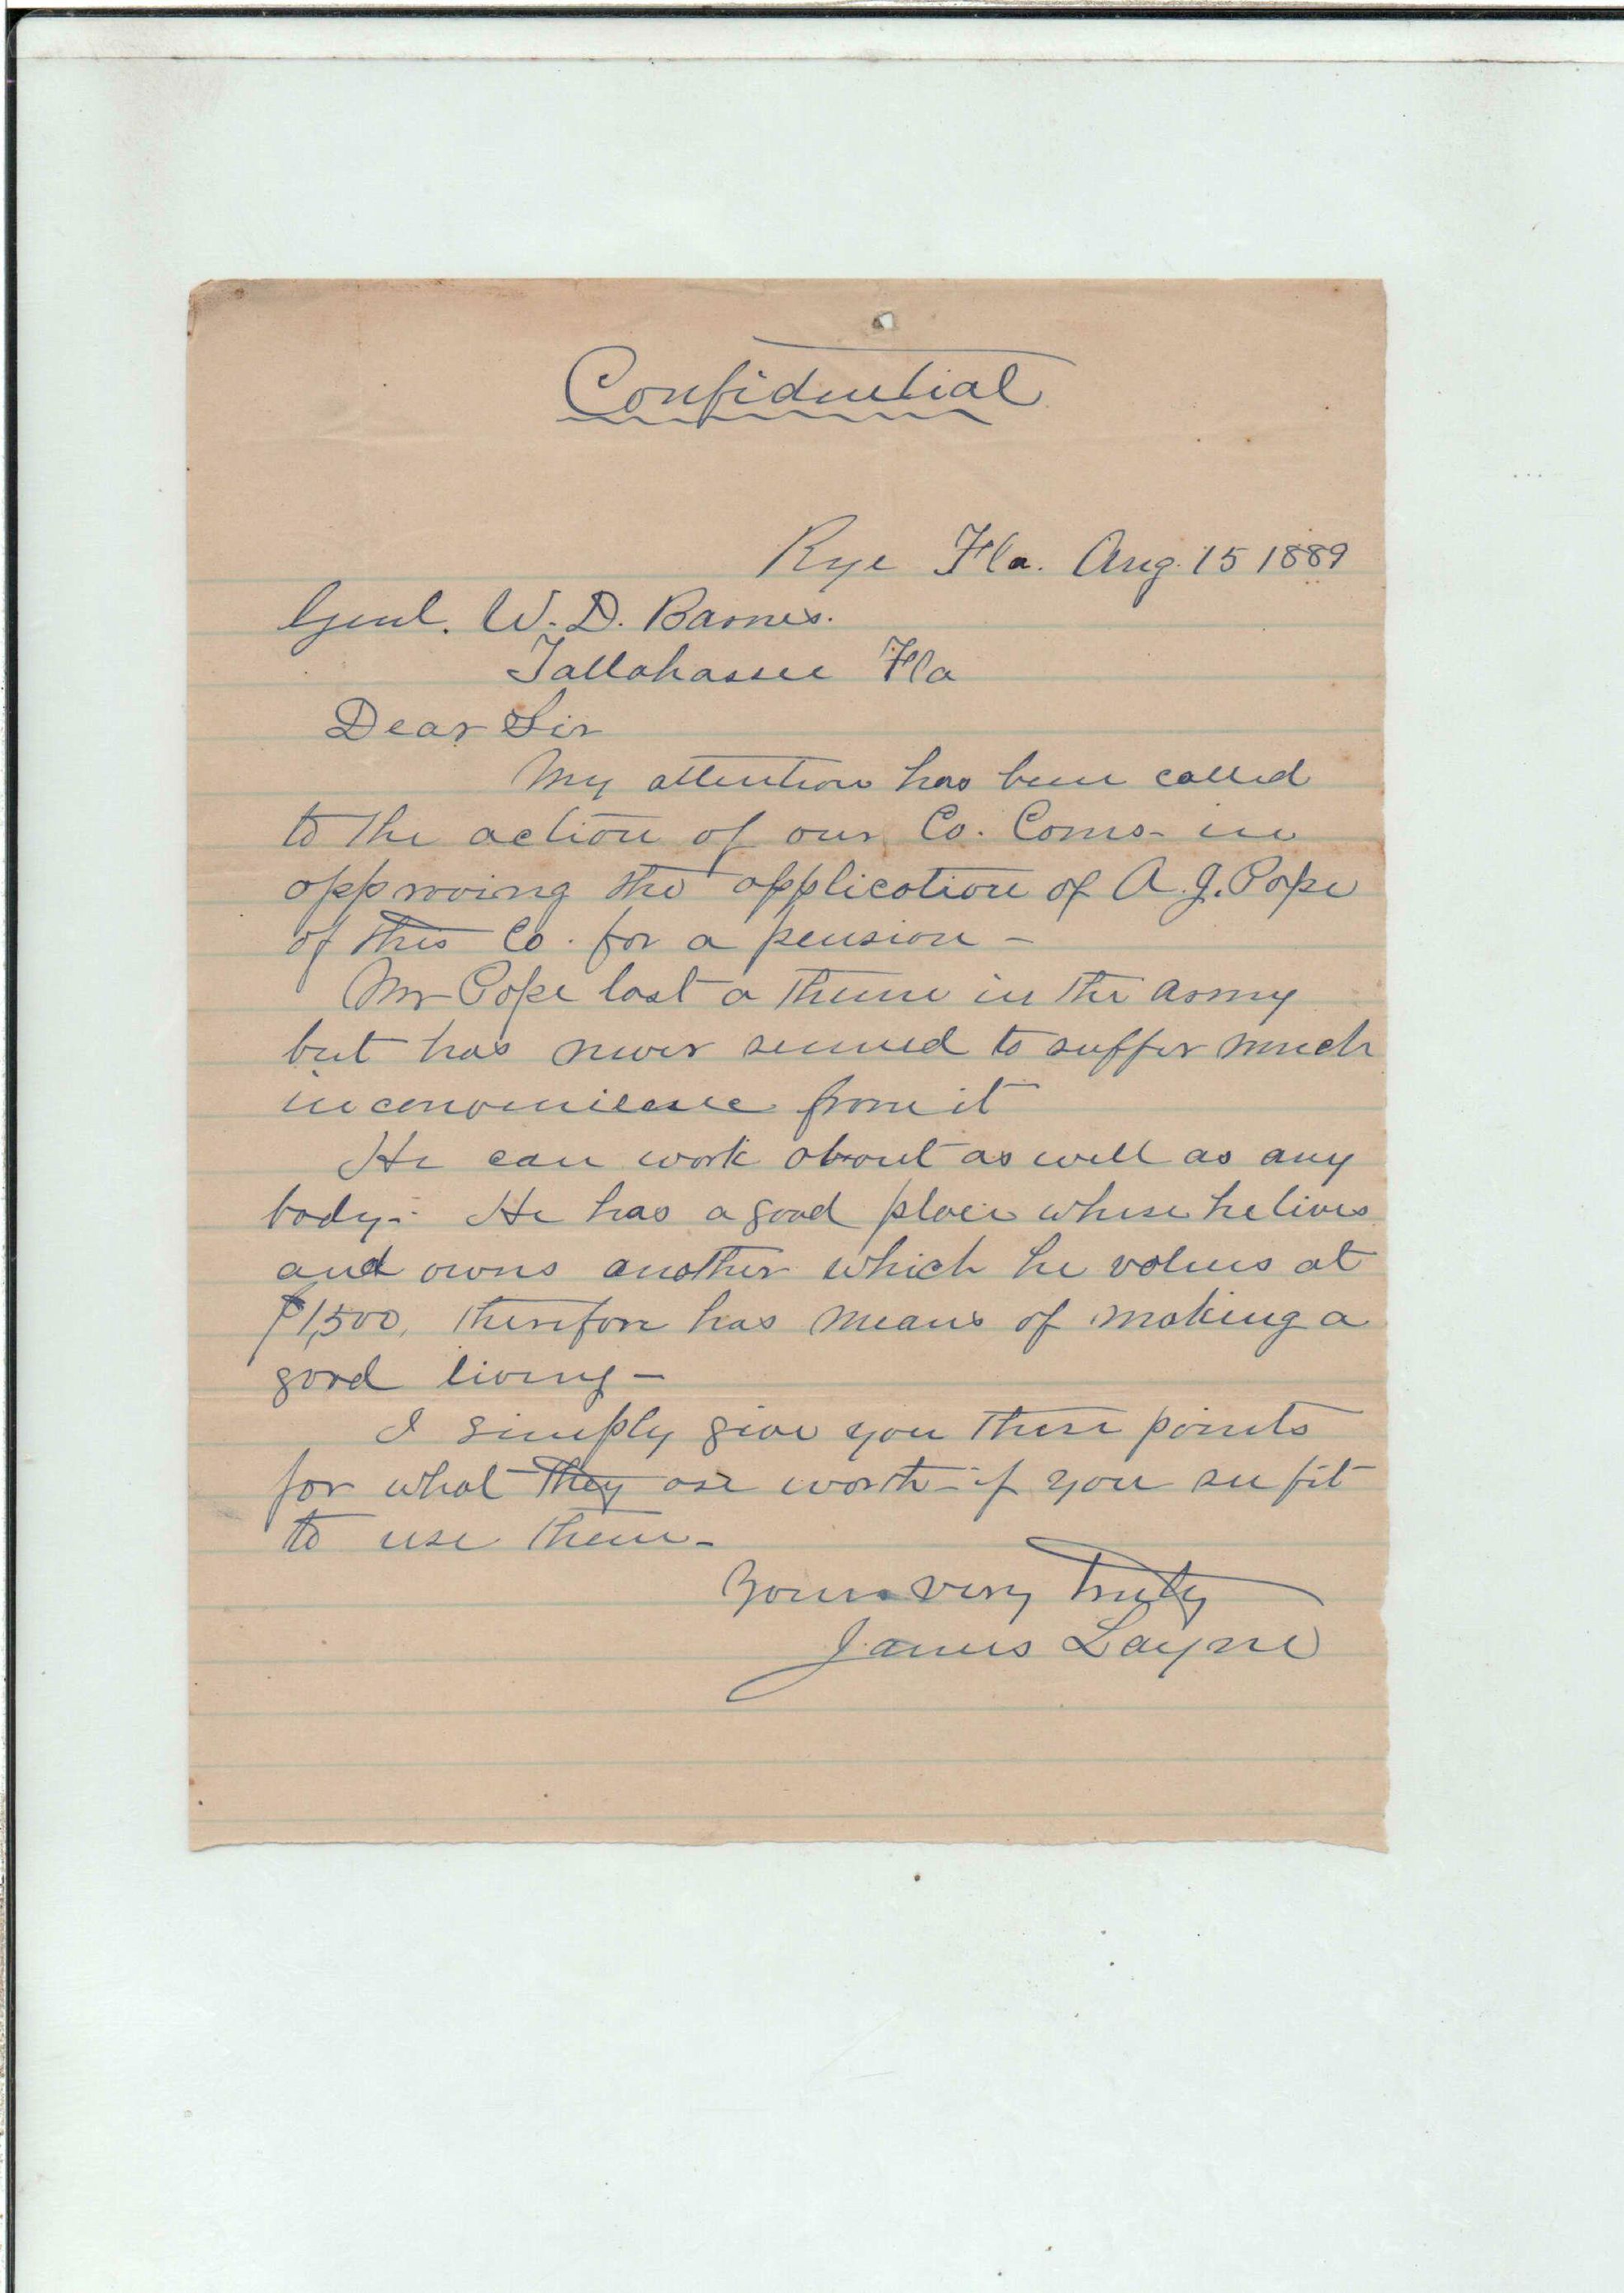 Confidential
Rye Fla. Aug. 15 1889
Genl. W. D. Barnes.
Tallahassee Fla
Dear Sir
My attention has been called
to the action of our Co. Coms- in
approving the application of A. J. Pope
of this Co. for a pension -
Mr Pope lost a thum in the army
but has never seemed to suffer much
inconvenience from it
He can work about as well as any
body - He has a good place where he lives
and owns another which he values at
$1,500, therefore has means of making a
good living -
I simply give you these points
for what they are worth - if you see fit
to use them -
Yours very truly
James Layne